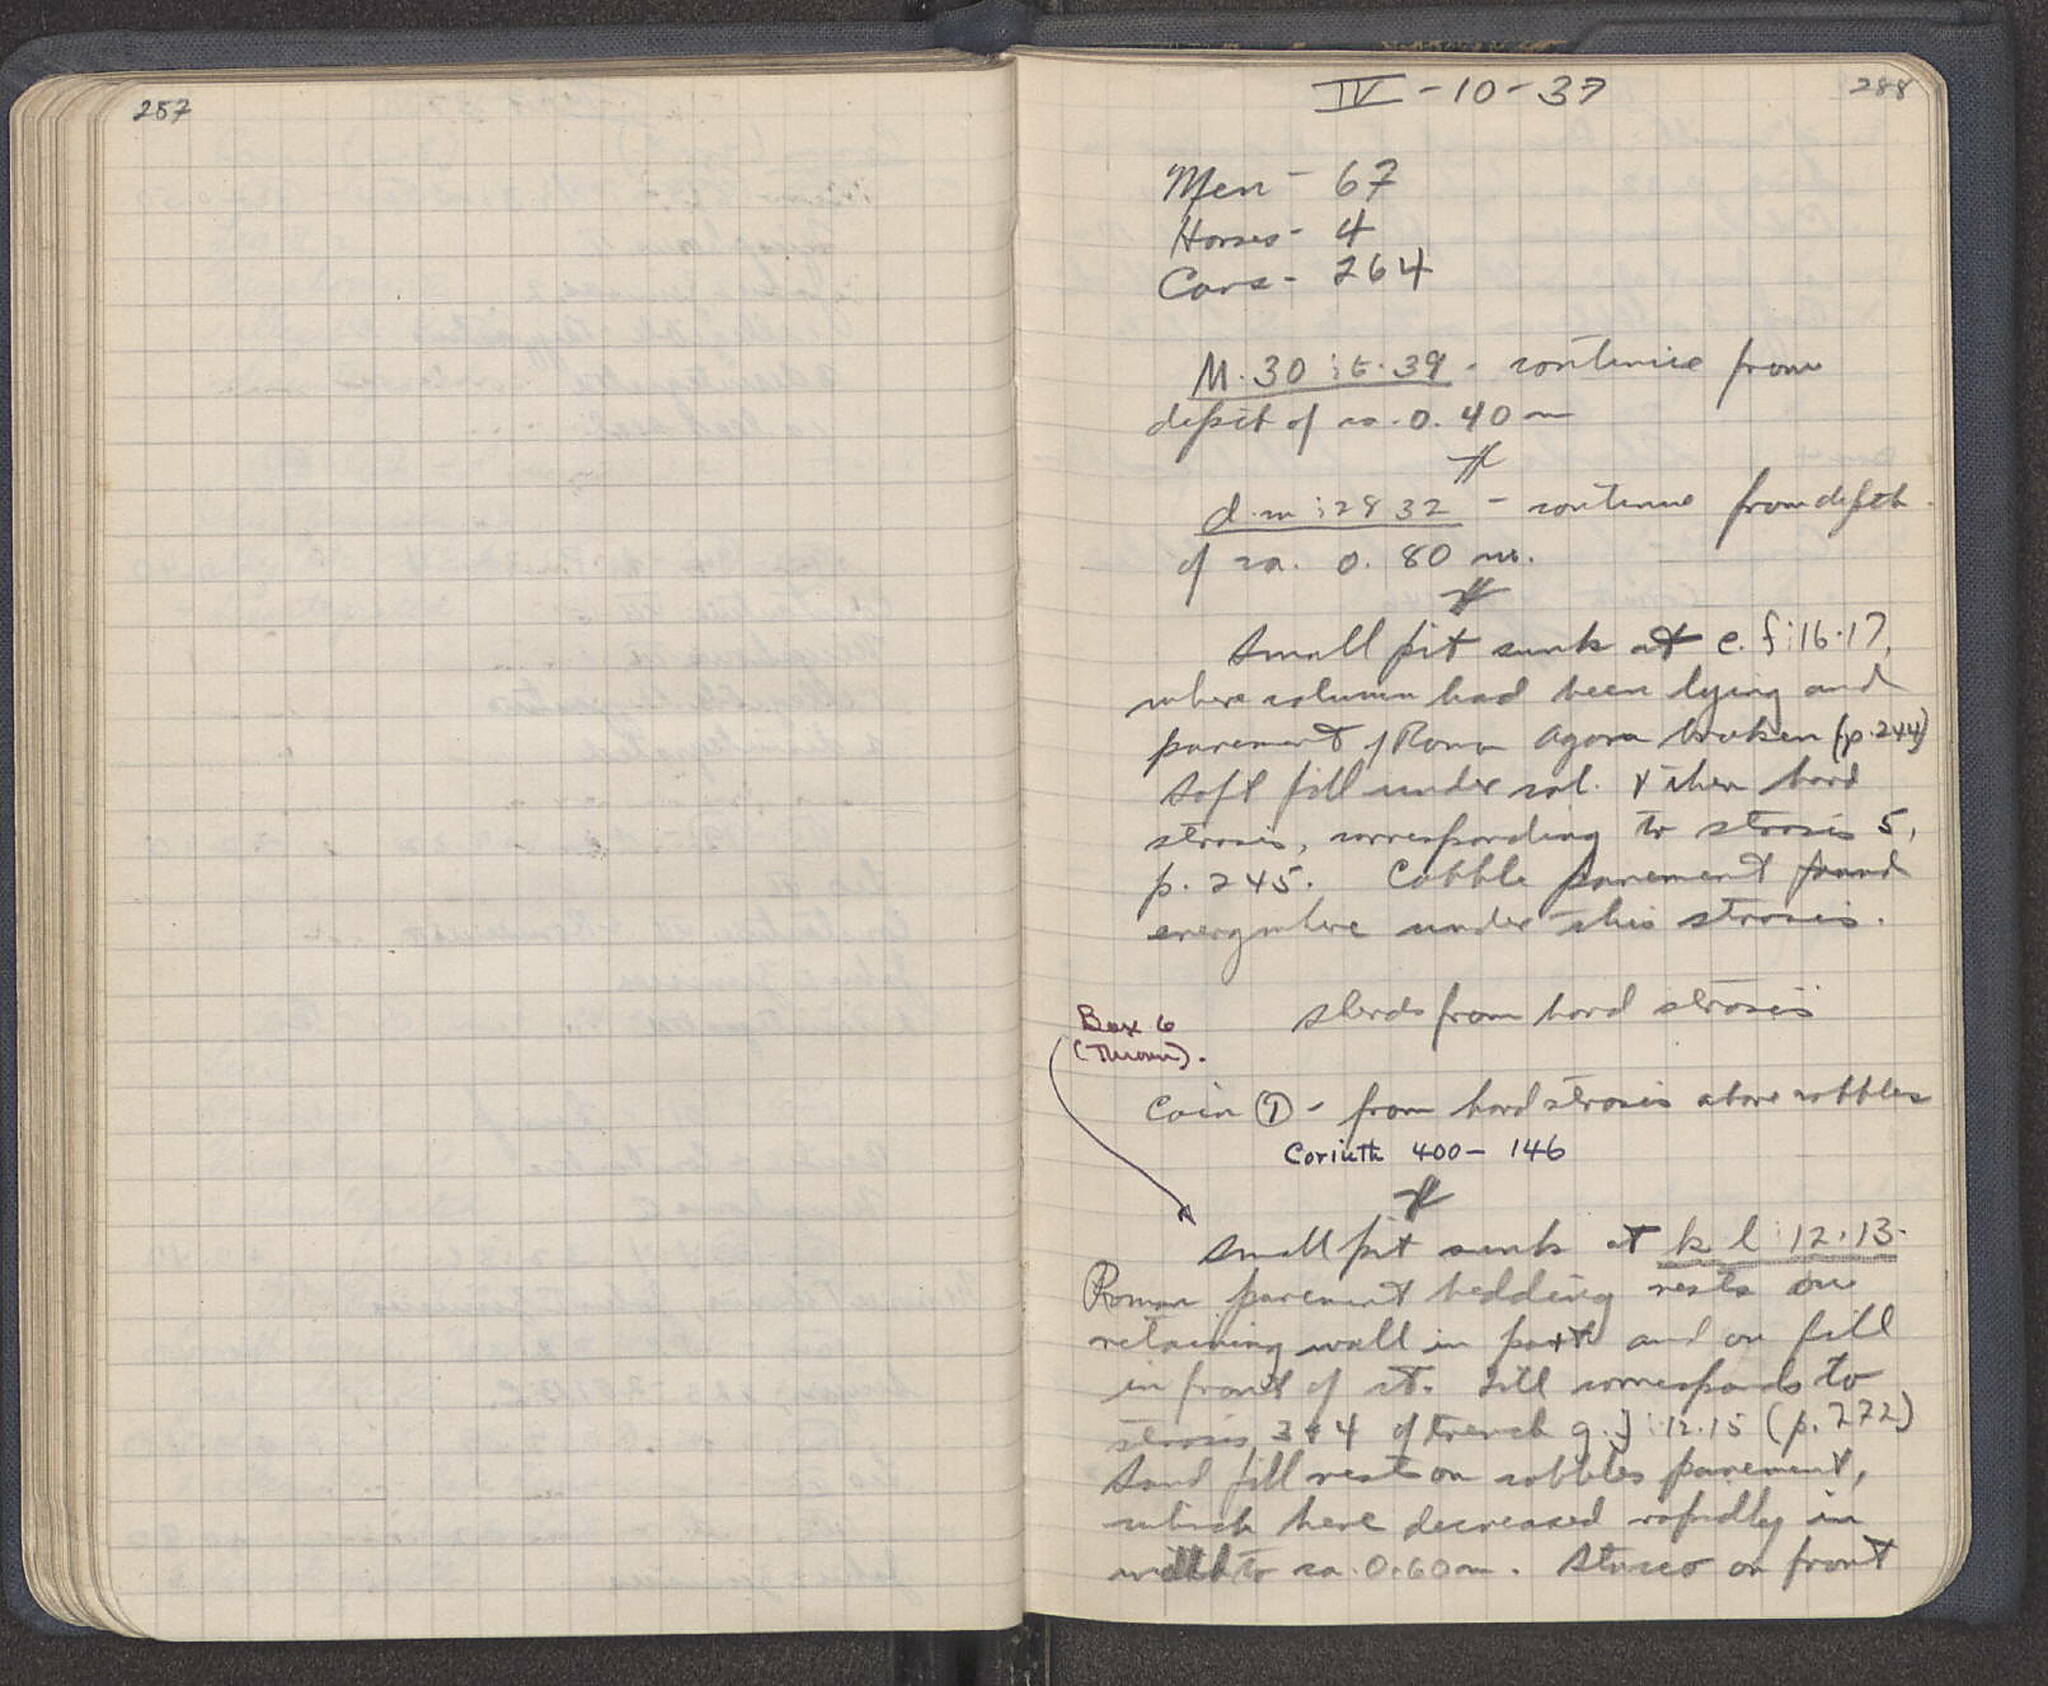 287
288
IV-10-37
Men - 67
Horses - 4
Cars - 264
M.30 : t.39 - continue from
depth of ca. 0.40 m
d.m : 28 32 - continue from depth
of ca. 0.80 m.
Small pit sunk at e.f:16.17,
where column had been lying and
pavement of Roman Agora broken (p.244)
Soft fill under col. & then hard
strosis, corresponding to strosis 5,
p. 245. Cobble pavement found
everywhere under this strosis.
Sherds from hard strosis
Box 6
(Thrown).
Coin ① - from hard strosis above cobbles
Corinth 400-146
Small pit sunk at k l : 12.13.
Roman pavement bedding rests on
retaining wall in part and on fill
in front of it. Fill corresponds to
strosis 3+4 of trench g.j:12.15 (p.272)
Sand fill rests on cobbles pavement,
which here decreased rapidly in
width to ca. 0.60 m. Stucco on front